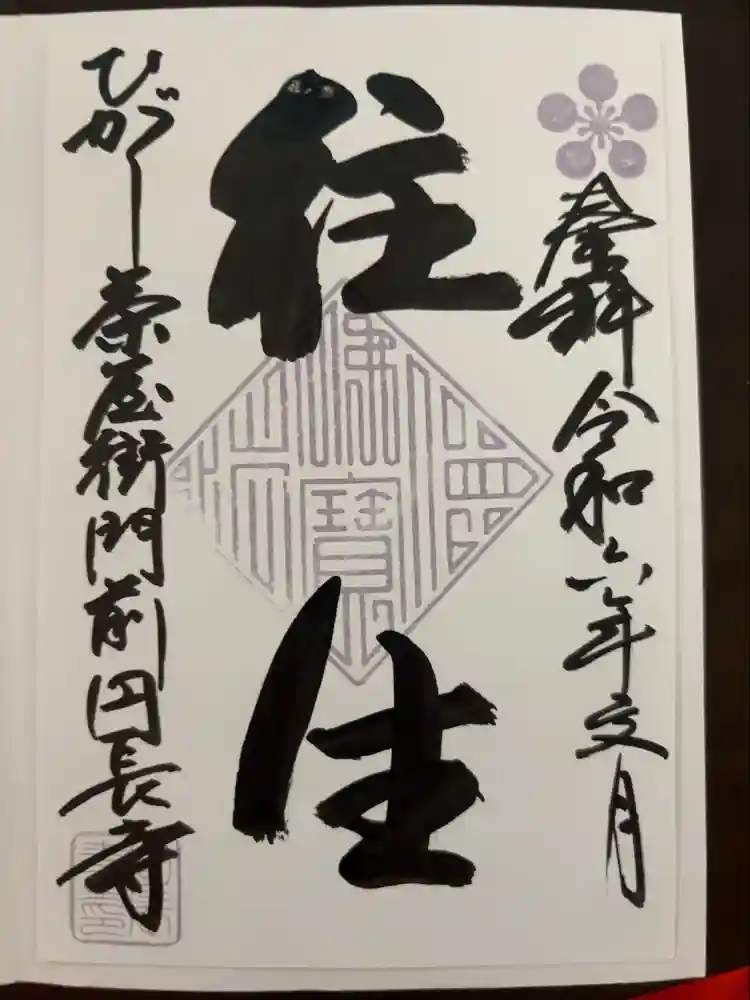 奉拝 令和六年文月
往生
ひがし茶屋街門前円長寺